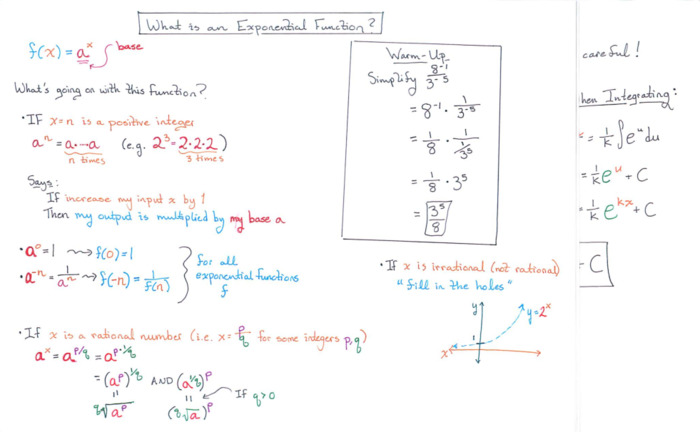 What is an Exponential Function?
f(x) = aˣ base
What's going on with this function?
• IF x=n is a positive integer
aⁿ = a·⋯·a (e.g. 2³ = 2·2·2)
n times 3 times
Says:
If increase my input x by 1
Then my output is multiplied by my base a
• a⁰ = 1 ⇝ f(0) = 1
• a⁻ⁿ = 1/aⁿ ⇝ f(-n) = 1/f(n)
for all
exponential functions
f
• If x is a rational number (i.e. x = p/q for some integers p,q)
aˣ = a^(p/q) = a^(p·1/q)
= (aᵖ)^(1/q) AND (a^(1/q))ᵖ
= = If q>0
q√aᵖ (q√a)ᵖ
Warm-Up
Simplify 8⁻¹/3⁻⁵
= 8⁻¹ · 1/3⁻⁵
= 1/8 · 1/(1/3⁵)
= 1/8 · 3⁵
= 3⁵/8
• If x is irrational (not rational)
"fill in the holes"
y
y=2ˣ
1
x
careful!
hen Integrating:
= 1/k ∫eᵘdu
= 1/k eᵘ + C
= 1/k e^(kx) + C
- C